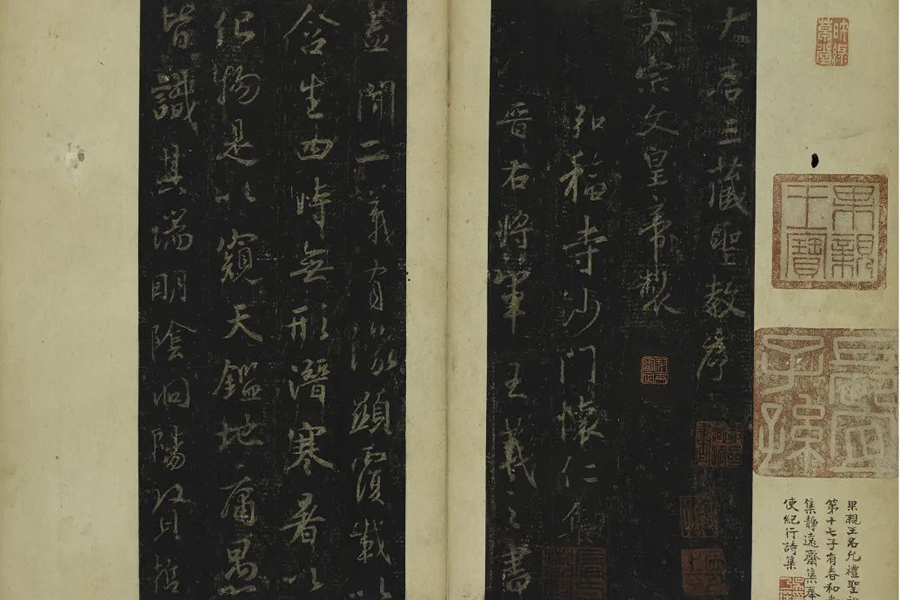 果親王寶
長宜子孫
果親王名允禮聖祖
第十七子有春和堂
集靜遠齋集奉
使紀行詩集
大唐三藏聖教序
太宗文皇帝製
弘福寺沙門懷仁集
晉右將軍王羲之書
蓋聞二儀有像顯覆載以
含生四時無形潛寒暑以
化物是以窺天鑑地庸愚
皆識其端明陰洞陽賢哲